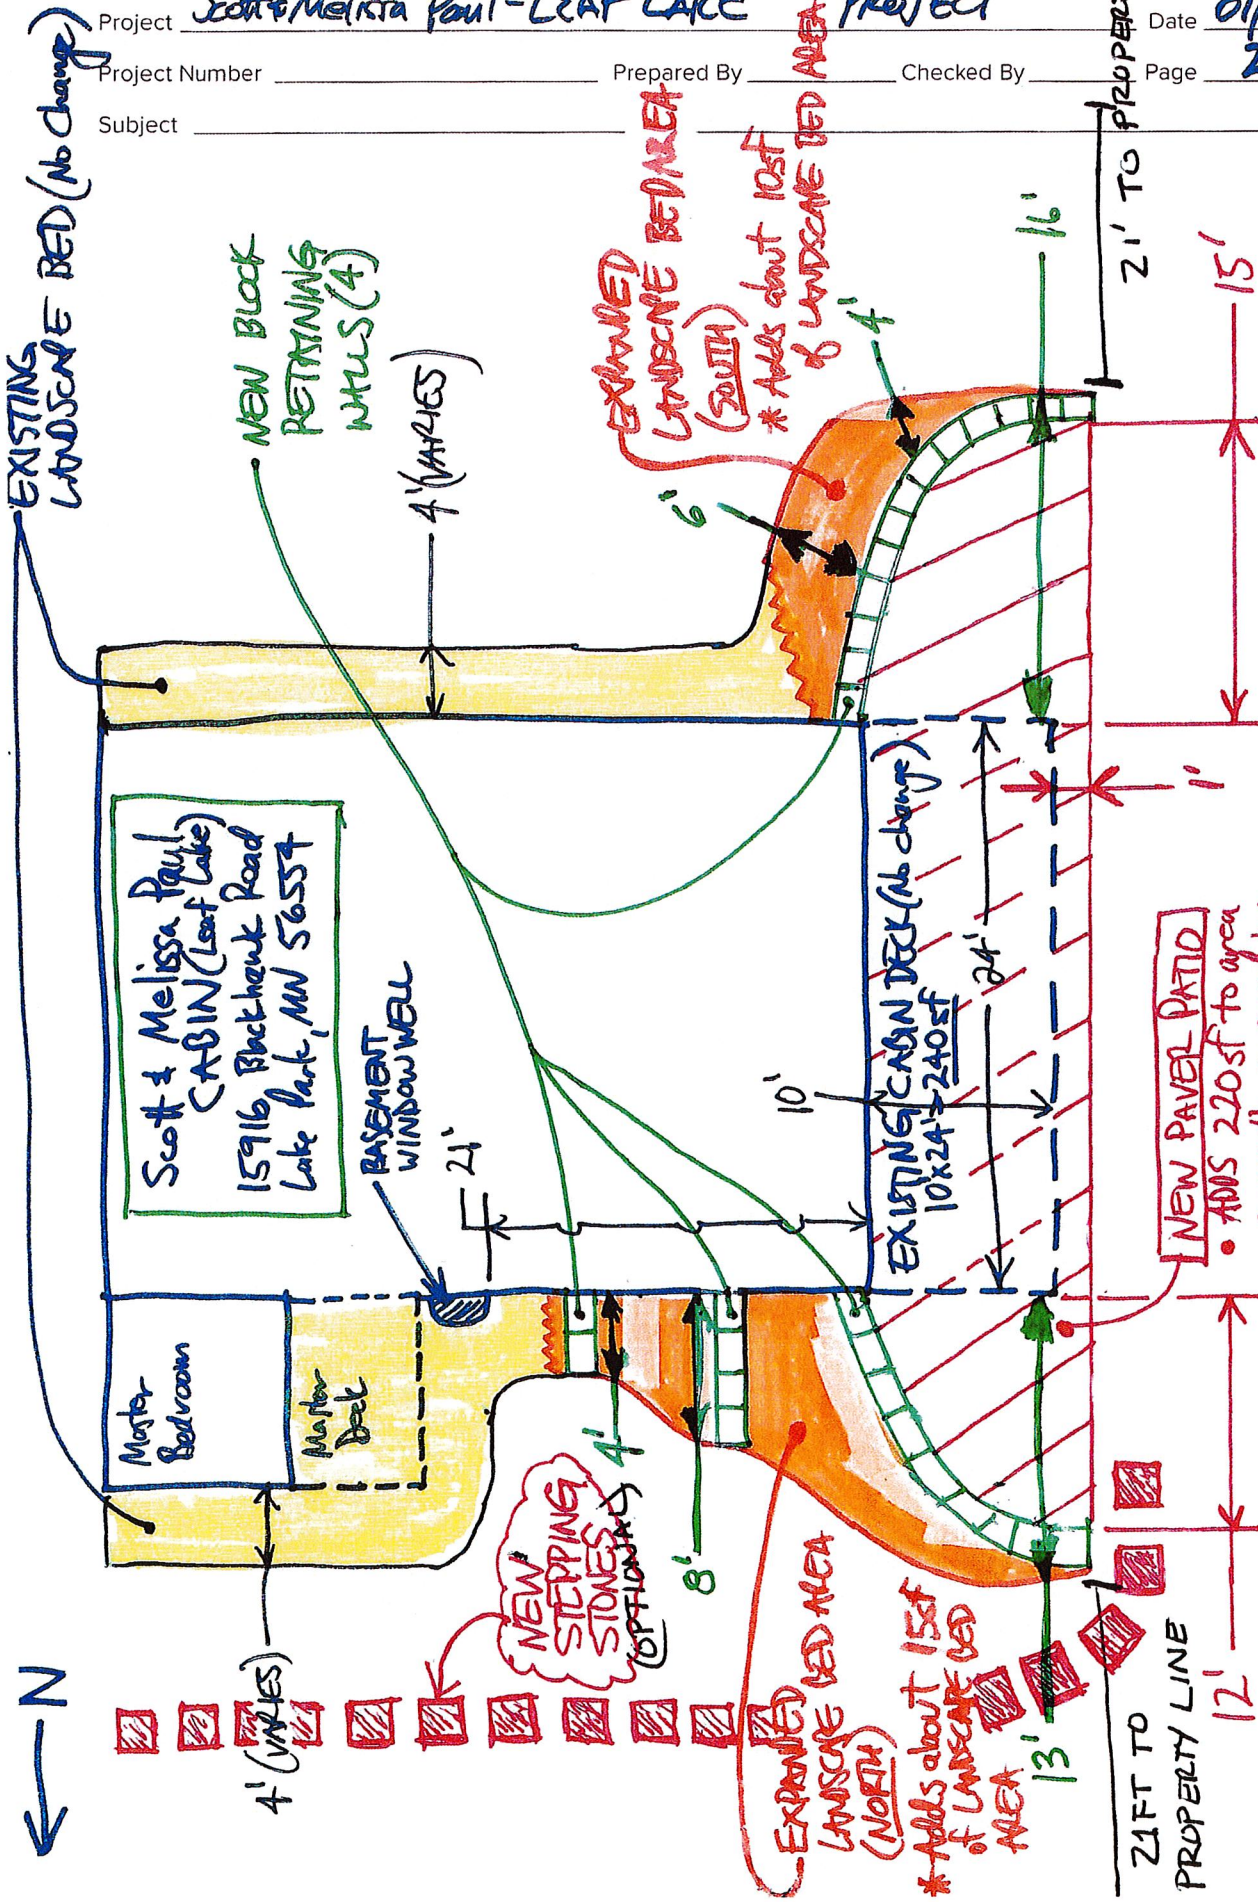 Project Scott & Melissa Paul - LEAF LAKE PROJECT Date 01/
Project Number Prepared By Checked By Page 2
Subject
EXISTING
LANDSCAPE BED (No Change)
NEW BLOCK
RETAINING
WALLS (4)
4' (VARIES)
EXPANDED
LANDSCAPE BED AREA
(SOUTH)
* Adds about 10sf
of LANDSCAPE BED AREA
6'
4'
16'
21' TO PROPER
15'
1'
Scott & Melissa Paul
CABIN (Leaf Lake)
15916 Blackhawk Road
Lake Park, MN 56554
BASEMENT
WINDOW WELL
21'
10'
EXISTING CABIN DECK (No change)
10x24' = 240sf
24'
NEW PAVER PATIO
• ADDS 220sf to area
Master
Bedroom
Master
Deck
4' (VARIES)
N
NEW
STEPPING
STONES
(OPTIONAL)
4'
8'
EXPANDED
LANDSCAPE BED AREA
(NORTH)
* Adds about 15sf
of LANDSCAPE BED
AREA
13'
21FT TO
PROPERTY LINE
12'